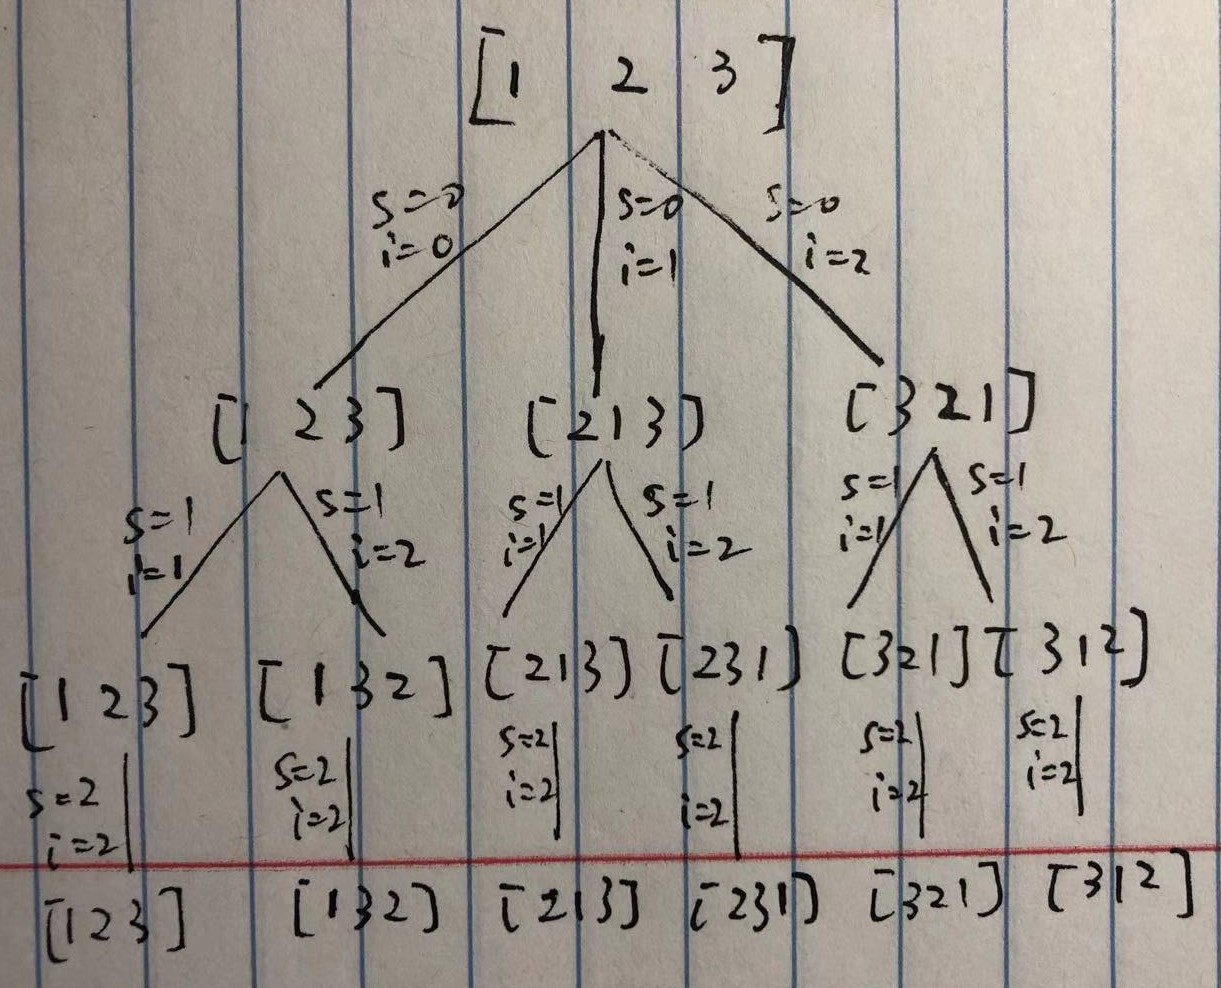 [1 2 3]
s=0 s=0 s=0
i=0 i=1 i=2
[1 2 3] [213] [321]
s=1 s=1 s=1 s=1 s=1 s=1
i=1 i=2 i=1 i=2 i=1 i=2
[1 2 3] [1 3 2] [213] [231] [321] [312]
s=2 s=2 s=2 s=2 s=2 s=2
i=2 i=2 i=2 i=2 i=2 i=2
[123] [132] [213] [231] [321] [312]